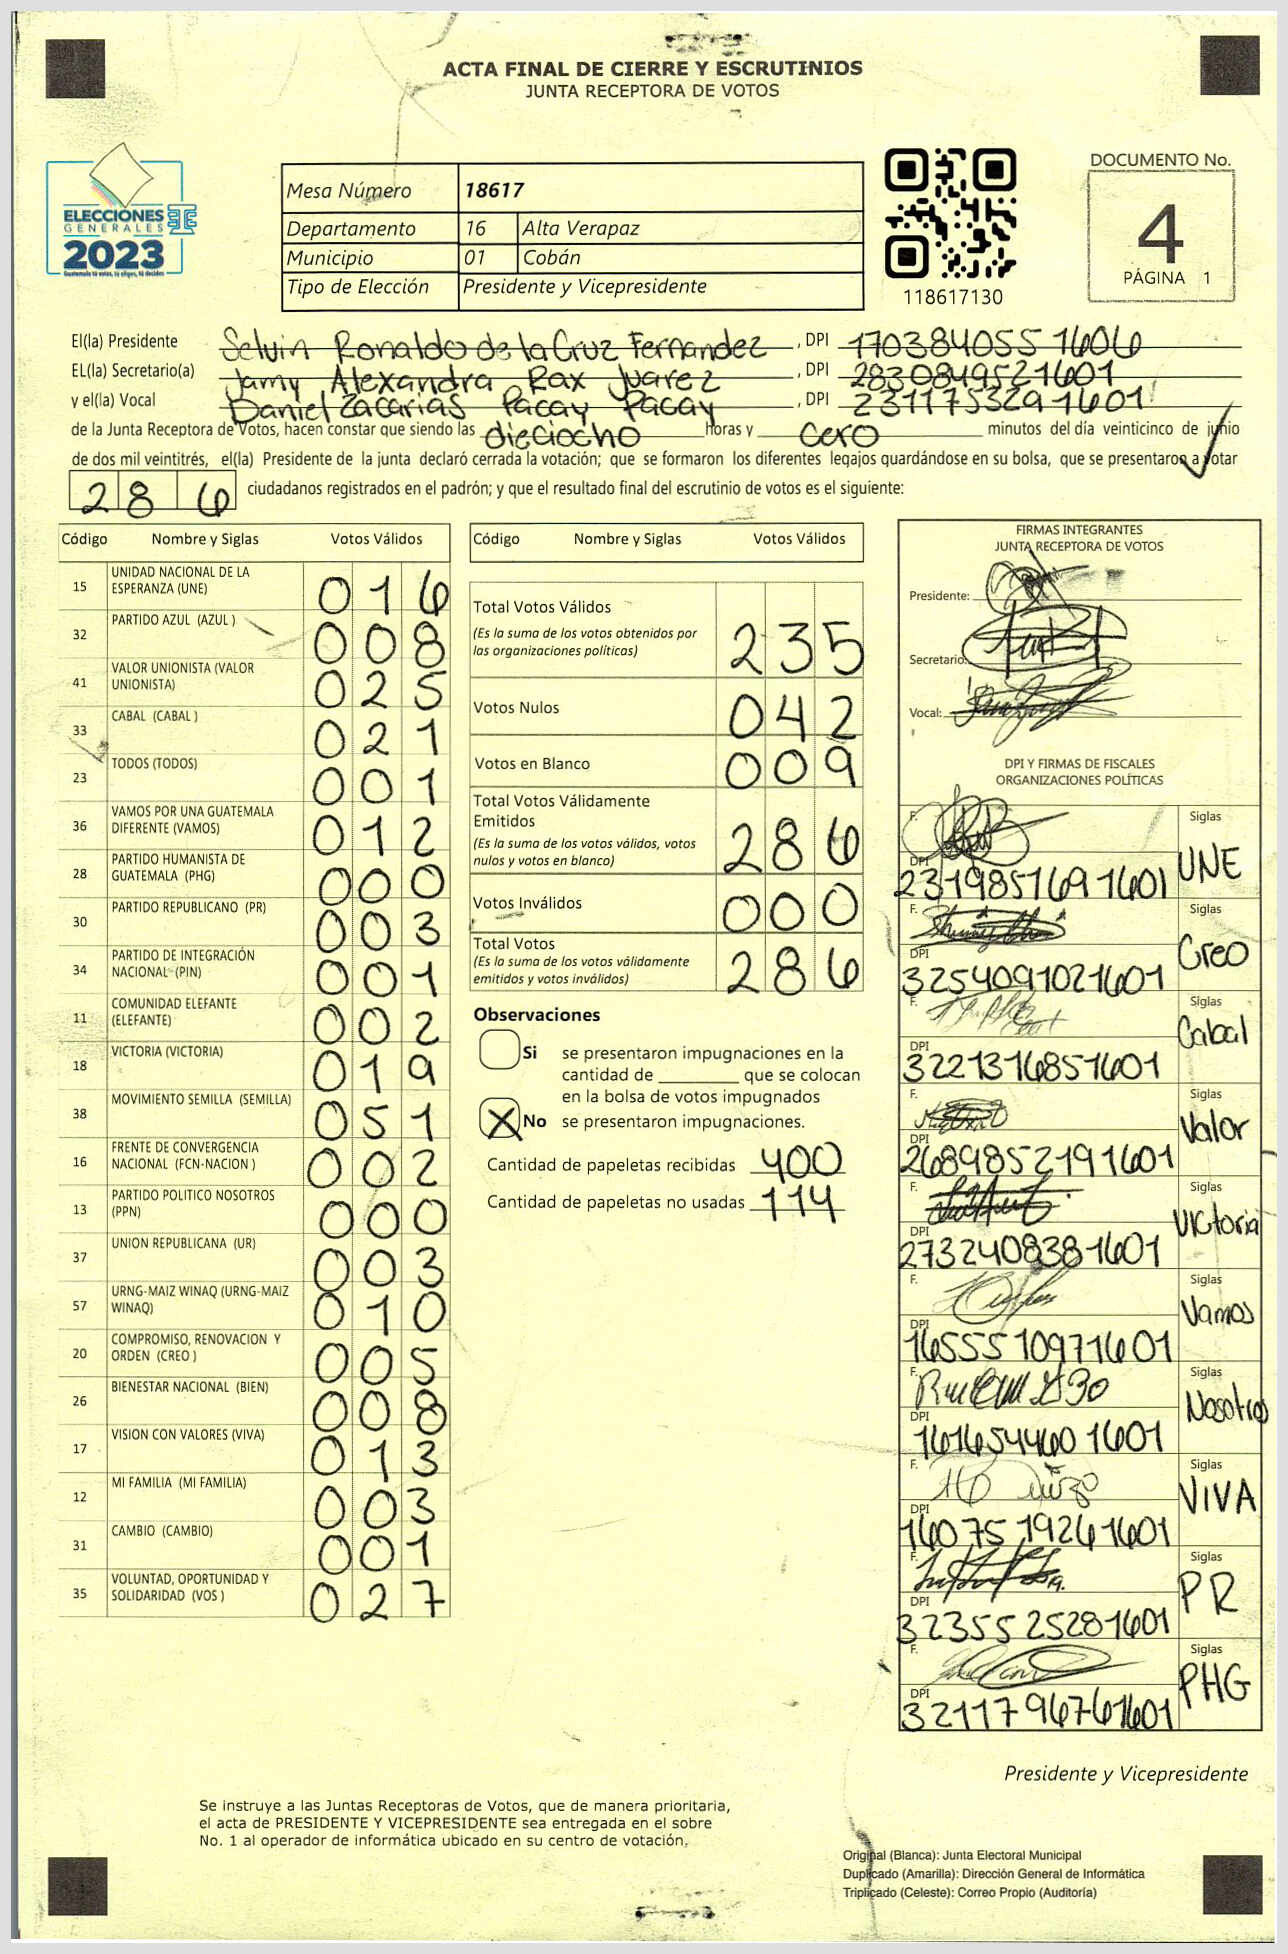 ACTA FINAL DE CIERRE Y ESCRUTINIOS
JUNTA RECEPTORA DE VOTOS
ELECCIONES
GENERALES
2023
Guatemala tú votas, tú eliges, tú decides
Mesa Número 18617
Departamento 16 Alta Verapaz
Municipio 01 Cobán
Tipo de Elección Presidente y Vicepresidente
118617130
DOCUMENTO No.
4
PÁGINA 1
El(la) Presidente Selvin Ronaldo de la Cruz Fernandez , DPI 170384055 1606
EL(la) Secretario(a) Jamy Alexandra Rax Juarez , DPI 2830849521601
y el(la) Vocal Daniel Zacarias Pacay Pacay , DPI 2311753291601
de la Junta Receptora de Votos, hacen constar que siendo las dieciocho horas y cero minutos del día veinticinco de junio
de dos mil veintitrés, el(la) Presidente de la junta declaró cerrada la votación; que se formaron los diferentes legajos quardándose en su bolsa, que se presentaron a votar
286 ciudadanos registrados en el padrón; y que el resultado final del escrutinio de votos es el siguiente:
Código Nombre y Siglas Votos Válidos
15 UNIDAD NACIONAL DE LA ESPERANZA (UNE) 016
32 PARTIDO AZUL (AZUL ) 008
41 VALOR UNIONISTA (VALOR UNIONISTA) 025
33 CABAL (CABAL ) 021
23 TODOS (TODOS) 001
36 VAMOS POR UNA GUATEMALA DIFERENTE (VAMOS) 012
28 PARTIDO HUMANISTA DE GUATEMALA (PHG) 000
30 PARTIDO REPUBLICANO (PR) 003
34 PARTIDO DE INTEGRACIÓN NACIONAL (PIN) 001
11 COMUNIDAD ELEFANTE (ELEFANTE) 002
18 VICTORIA (VICTORIA) 019
38 MOVIMIENTO SEMILLA (SEMILLA) 051
16 FRENTE DE CONVERGENCIA NACIONAL (FCN-NACION ) 002
13 PARTIDO POLITICO NOSOTROS (PPN) 000
37 UNION REPUBLICANA (UR) 003
57 URNG-MAIZ WINAQ (URNG-MAIZ WINAQ) 010
20 COMPROMISO, RENOVACION Y ORDEN (CREO ) 005
26 BIENESTAR NACIONAL (BIEN) 008
17 VISION CON VALORES (VIVA) 013
12 MI FAMILIA (MI FAMILIA) 003
31 CAMBIO (CAMBIO) 001
35 VOLUNTAD, OPORTUNIDAD Y SOLIDARIDAD (VOS ) 027
Código Nombre y Siglas Votos Válidos
Total Votos Válidos 235
(Es la suma de los votos obtenidos por
las organizaciones políticas)
Votos Nulos 042
Votos en Blanco 009
Total Votos Válidamente
Emitidos 286
(Es la suma de los votos válidos, votos
nulos y votos en blanco)
Votos Inválidos 000
Total Votos 286
(Es la suma de los votos válidamente
emitidos y votos inválidos)
Observaciones
Si se presentaron impugnaciones en la
cantidad de ________ que se colocan
en la bolsa de votos impugnados
X No se presentaron impugnaciones.
Cantidad de papeletas recibidas 400
Cantidad de papeletas no usadas 114
FIRMAS INTEGRANTES
JUNTA RECEPTORA DE VOTOS
Presidente:
Secretario:
Vocal:
DPI Y FIRMAS DE FISCALES
ORGANIZACIONES POLÍTICAS
F. Siglas
DPI 2319851691601 UNE
F. Siglas
DPI 3254091021601 Creo
F. Siglas
DPI 3221316851601 Cabal
F. Siglas
DPI 2689852191601 Valor
F. Siglas
DPI 2732408381601 Victoria
F. Siglas
DPI 16555 10971601 Vamos
F. Siglas
DPI 161654460 1601 Nosotros
F. Siglas
DPI 160751926 1601 VIVA
F. Siglas
DPI 32355 25281601 PR
F. Siglas
DPI 3211796761601 PHG
Presidente y Vicepresidente
Se instruye a las Juntas Receptoras de Votos, que de manera prioritaria,
el acta de PRESIDENTE Y VICEPRESIDENTE sea entregada en el sobre
No. 1 al operador de informática ubicado en su centro de votación.
Original (Blanca): Junta Electoral Municipal
Duplicado (Amarilla): Dirección General de Informática
Triplicado (Celeste): Correo Propio (Auditoría)